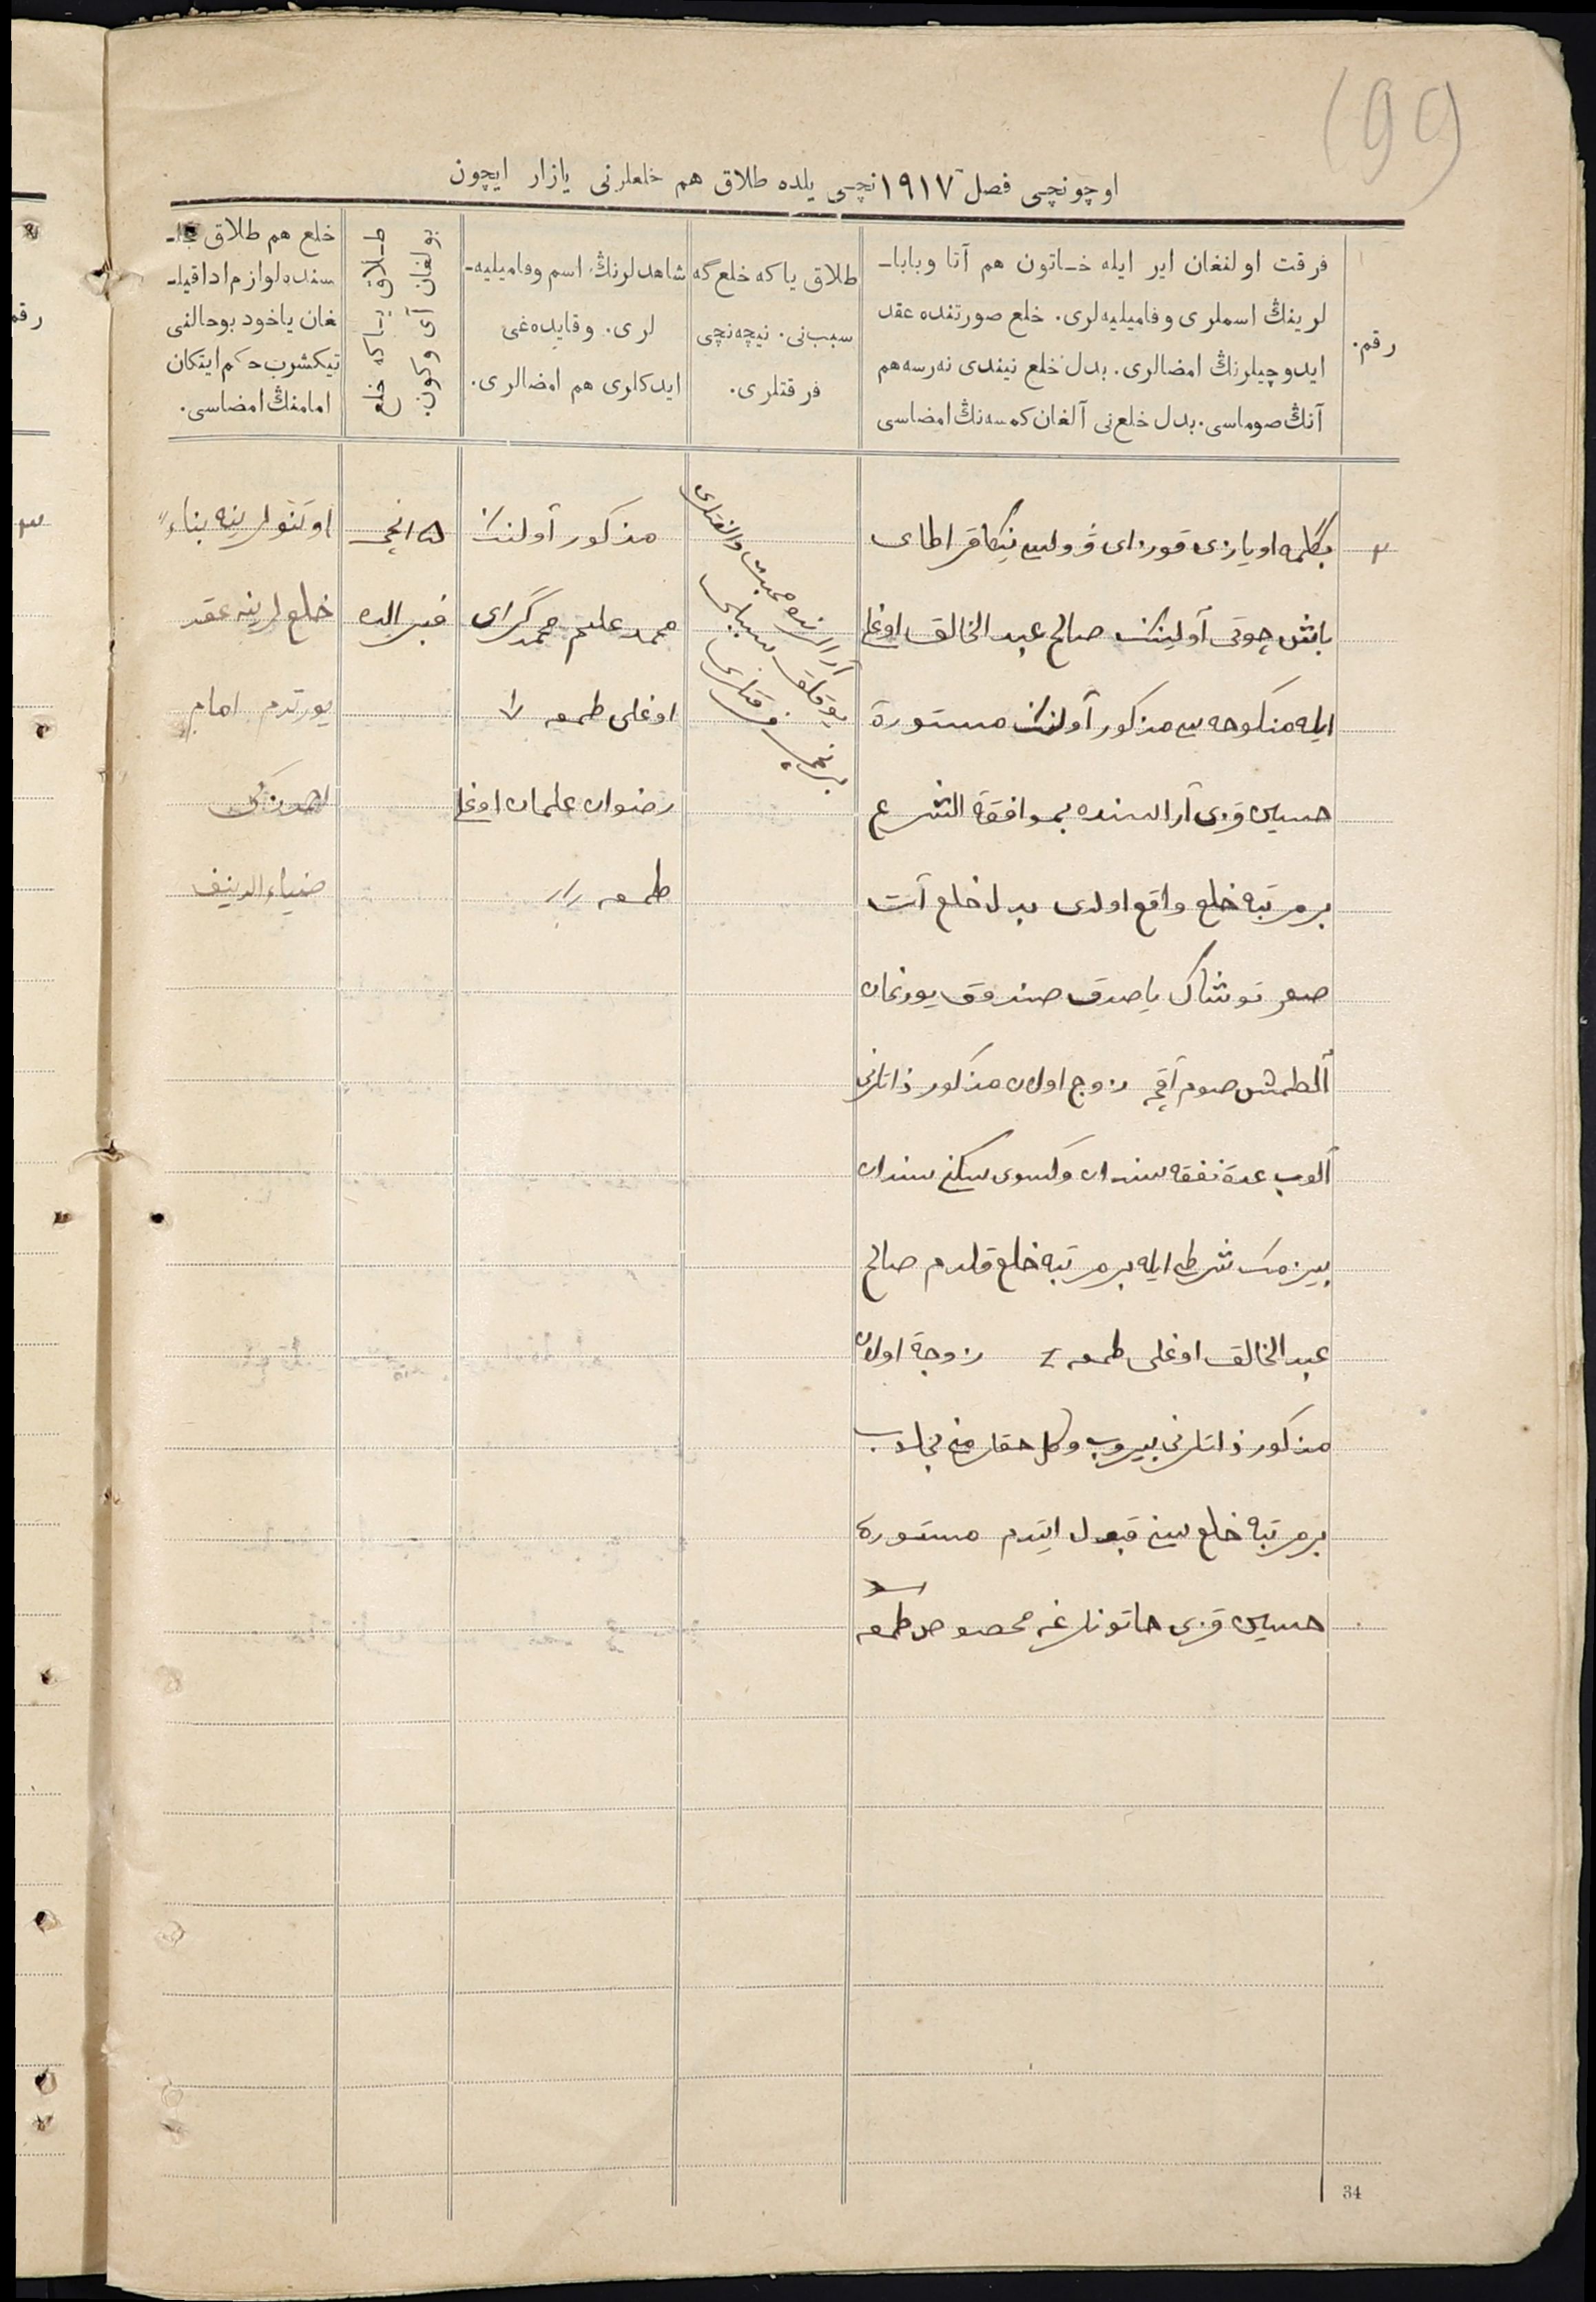 (99)
اوچونچی فصل ١٩١٧ نچی یلده طلاق هم خلعلرنی یازار ایچون
رقم.
فرقت اولنغان ایر ایله خاتون هم آتا وبابا-
لرینڭ اسملری وفامیلیه‌لری. خلع صورتنده عقد
ایدوچیلرنڭ امضالری. بدل خلع نیندی نه‌رسه هم
آنڭ صوماسی. بدل خلع‌نی آلغان کمسه‌نڭ امضاسی
طلاق یاکه خلع‌گه
سبب‌نی. نیچه‌نچی
فرقتلری.
شاهدلرنڭ اسم وفامیلیه-
لری. وقایده‌غی
ایدکلری هم امضالری.
طلاق یاکه خلع
بولغان آی وکون.
خلع هم طلاق
سنده لوازم ادا قیل-
غان یاخود بوحالنی
تیکشرب حکم ایتکان
امامنڭ امضاسی.
٢
اویازی قورزای قراطای
باش چوقی آولینڭ صالح عبد الخالق اوغلی
ایله منکوحه سی مذکور آولنڭ مستورة
حسین قزی آراسنده بموافقة الشرع
برمرتبه خلع واقع اولدی بدل خلع آت
توشاك یاصدق صندوق یورغان
آلطمش صوم آقچه زوج اولان مذکور ذاتلرنی
آلوب عدة نفقه سندان وکسوی سکنی سندان
بیزمک شرطی ایله برمرتبه خلع قلدم صالح
عبد الخالق اوغلی طمغه زوجة اولان
مذکور ذاتلرنی بیروب وکل حقلرمنی
برمرتبه خلع سنی قبول ایتدم مستورة
حسین قزی خاتونلرغه مخصوص طمغه
آرالرنده محبت والفتلری
یوقلق سببلی
برنچی فرقتلری
مذکور آولنڭ
محمد علیم محمد گرای
اوغلی طمغه
رضوان علمان اوغلی
طمغه
١٥ انچی
فبرالده
اوتنولرینه بناءً
خلع لرینه عقد
یورتدم امام
ضیاء الدینف
34